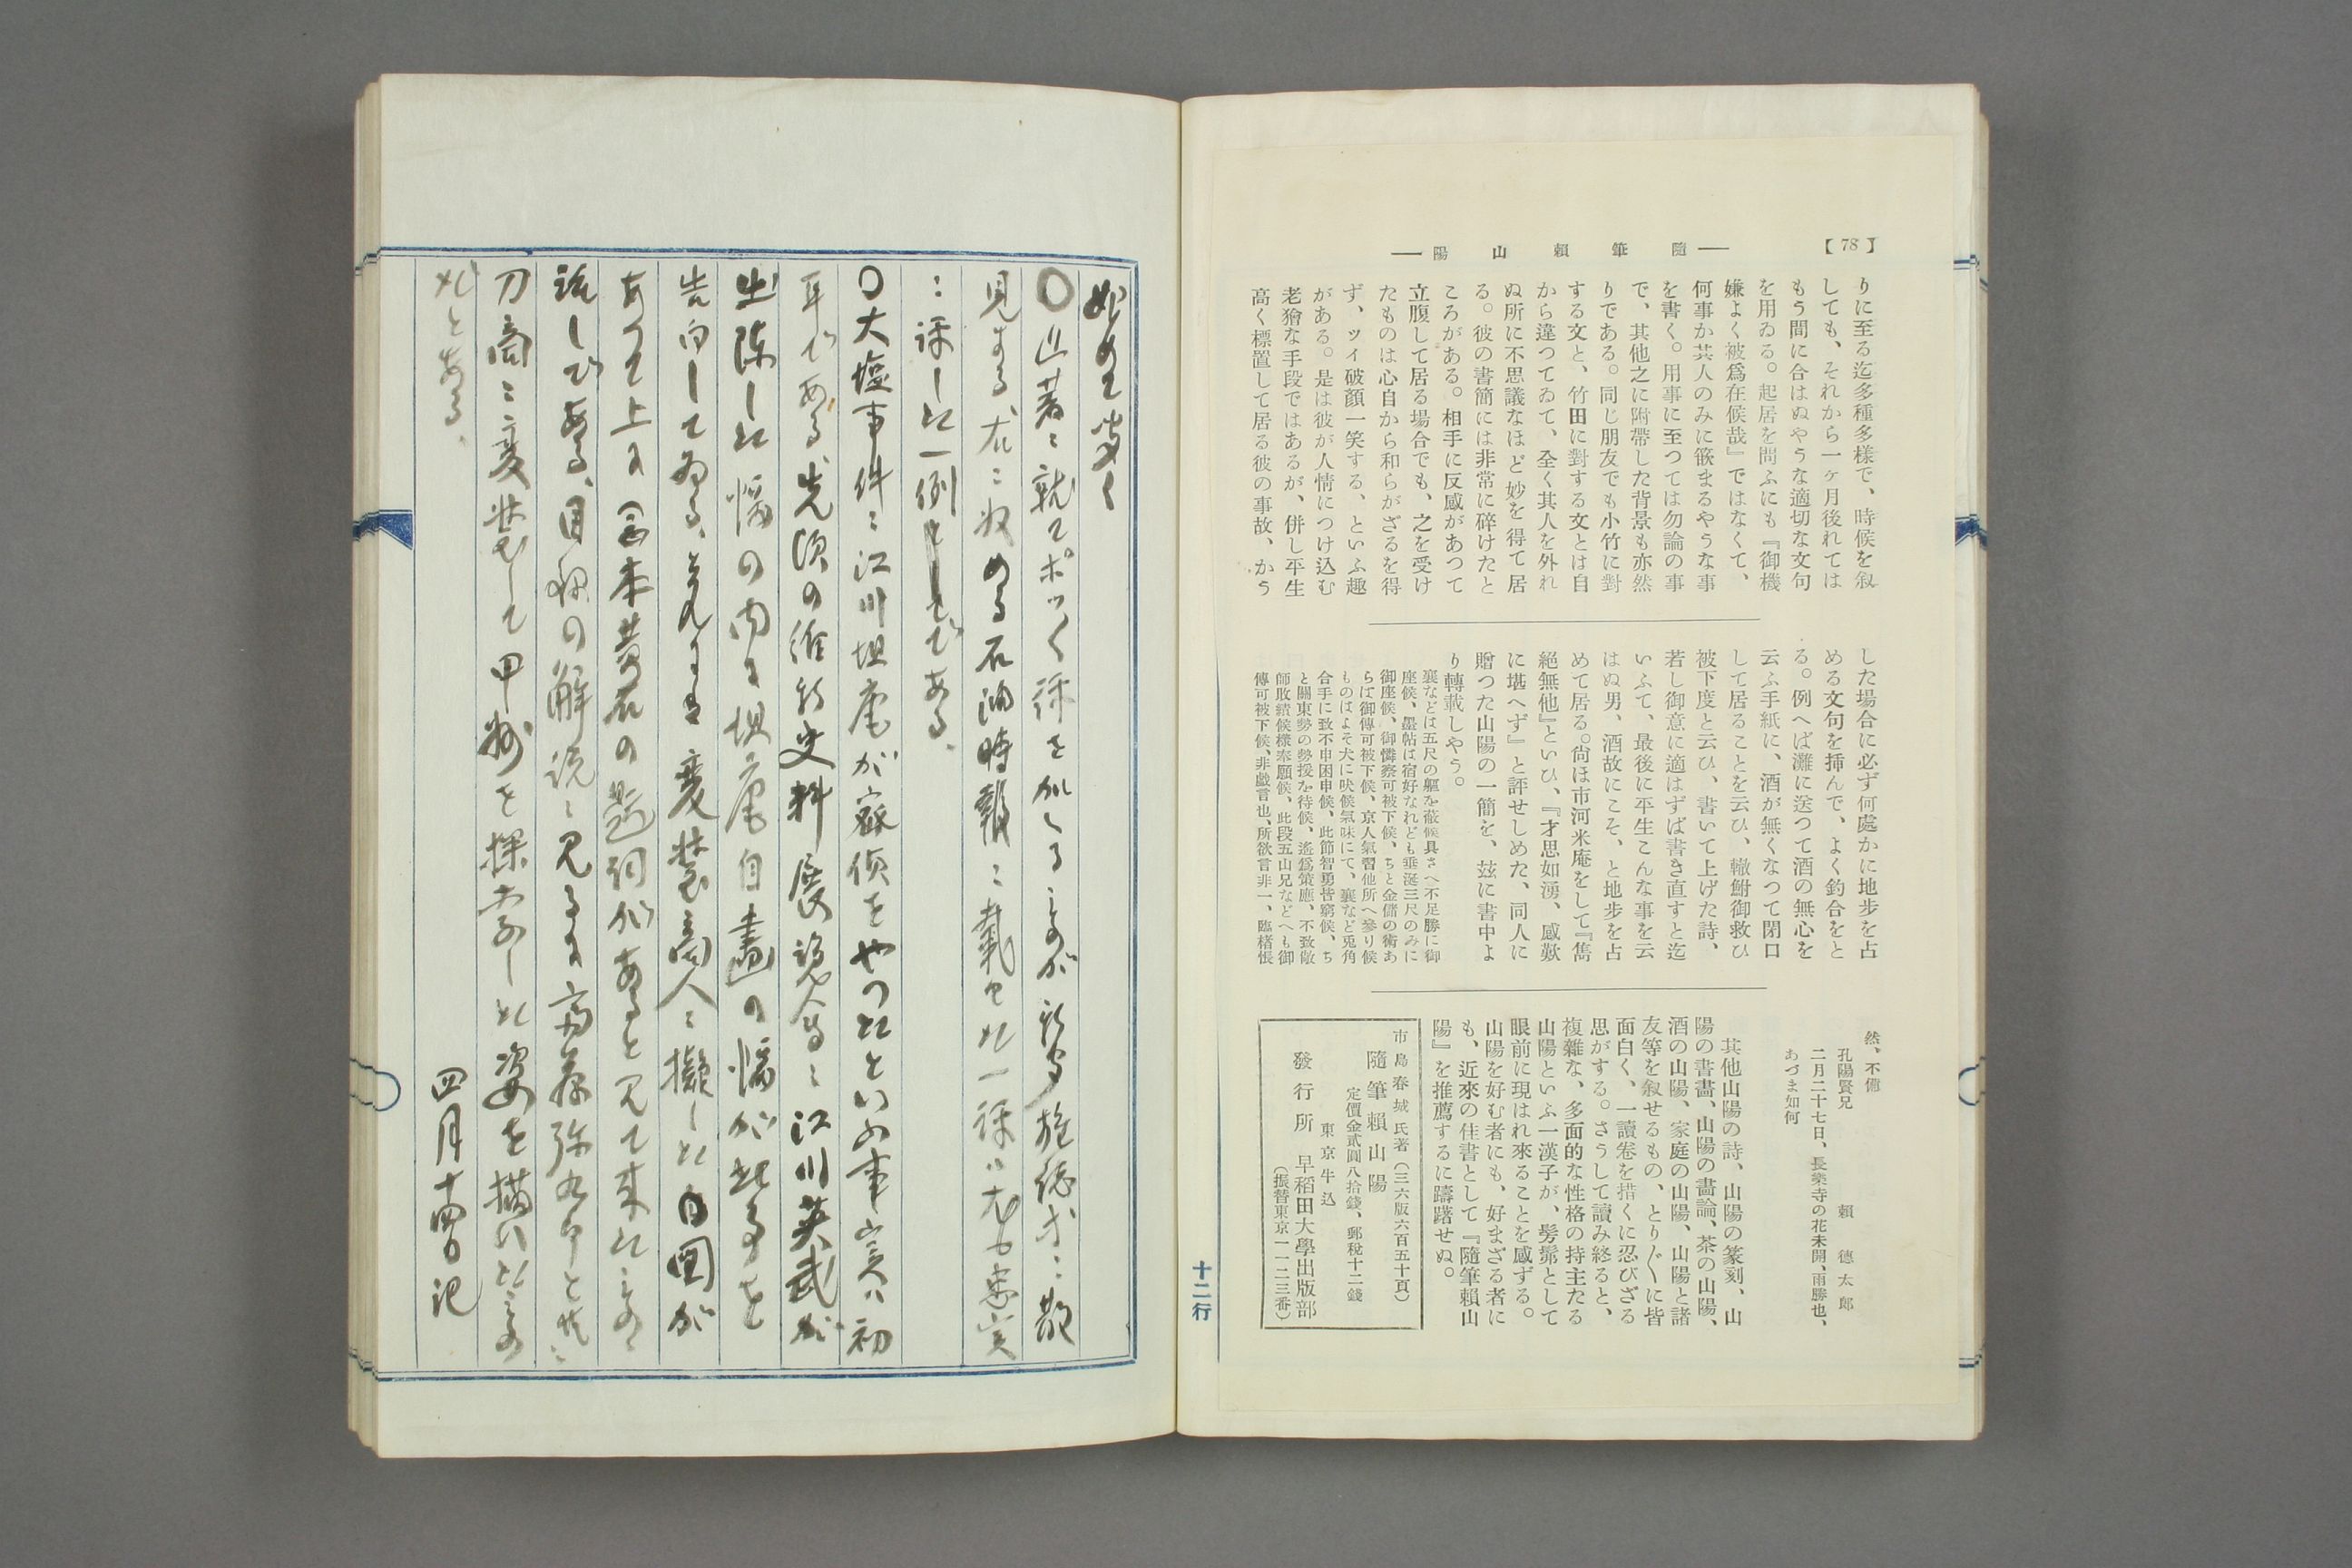 【78】
── 隨筆賴山陽 ──
りに至る迄多種多樣で、時候を叙
しても、それから一ヶ月後れては
もう間に合はぬやうな適切な文句
を用ゐる。起居を問ふにも『御機
嫌よく被爲在候哉』ではなくて、
何事か其人のみに篏まるやうな事
を書く。用事に至つては勿論の事
で、其他之に附帶した背景も亦然
りである。同じ朋友でも小竹に對
する文と、竹田に對する文とは自
から違つてゐて、全く其人を外れ
ぬ所に不思議なほど妙を得て居
る。彼の書簡には非常に碎けたと
ころがある。相手に反感があつて
立腹して居る場合でも、之を受け
たものは心自から和らがざるを得
ず、ツイ破顏一笑する、といふ趣
がある。是は彼が人情につけ込む
老獪な手段ではあるが、併し平生
高く標置して居る彼の事故、かう
した場合に必ず何處かに地步を占
める文句を挿んで、よく釣合をと
る。例へば灘に送つて酒の無心を
云ふ手紙に、酒が無くなつて閉口
して居ることを云ひ、轍鮒御救ひ
被下度と云ひ、書いて上げた詩、
若し御意に適はずば書き直すと迄
いふて、最後に平生こんな事を云
はぬ男、酒故にこそ、と地步を占
めて居る。尙ほ市河米庵をして『雋
絕無他』といひ、『才思如湧、感歎
に堪へず』と評せしめた、同人に
贈つた山陽の一簡を、玆に書中よ
り轉載しやう。
襄などは五尺の軀を蔽候具さへ不足勝に御
座候、墨帖は宿好なれども垂涎三尺のみに
御座候、御憐察可被下候、ちと金儲の術あ
らば御傳可被下候、京人氣習他所へ參り候
ものはよそ犬に吠候氣味にて、襄など兎角
合手に致不申困申候、此節智勇皆窮候、ち
と關東勢の勢援を待候、遙爲策應、不致敵
師敗績候樣奉願候、此段五山兄などへも御
傳可被下候、非戲言也、所欲言非一、臨楮悵
然、不備
孔陽賢兄 賴德太郎
二月二十七日、長樂寺の花未開、雨勝也、
あづま如何
其他山陽の詩、山陽の篆刻、山
陽の書畵、山陽の畵論、茶の山陽、
酒の山陽、家庭の山陽、山陽と諸
友等を叙せるもの、とり〲に皆
面白く、一讀卷を措くに忍びざる
思がする。さうして讀み終ると、
複雜な、多面的な性格の持主たる
山陽といふ一漢子が、髣髴として
眼前に現はれ來ることを感ずる。
山陽を好む者にも、好まざる者に
も、近來の佳書として『隨筆賴山
陽』を推薦するに躊躇せぬ。
市島春城氏著（三六版六百五十頁）
隨筆賴山陽
定價金貳圓八拾錢、郵稅十二錢
東京牛込
發行所 早稻田大學出版部
（振替東京一一二三番）
十二行
〇此著ニ就てポツ〱評を加へるものが新聞雜誌等ニ散
見する右ニ收める石油時報ニ載せた一評ハ尤も忠実
ニ評した一例としてである、
〇大塩事件ニ江川坦庵が密偵をやつたといふ事実ハ初
耳である、先頃の維新史料展覧会ニ江川英武が
出陳した幅の内に坦庵自畵の幅が此事を
告白してゐる、これは変装商人ニ擬した自画が
あつて上に岡本黄石の題詞があると見て来たものゝ
話しである、目録の解説ニ見るに斎藤弥九郎と共ニ
刀商ニ変装して甲州を探索した姿を描いたもの
だとある、
四月十四日記